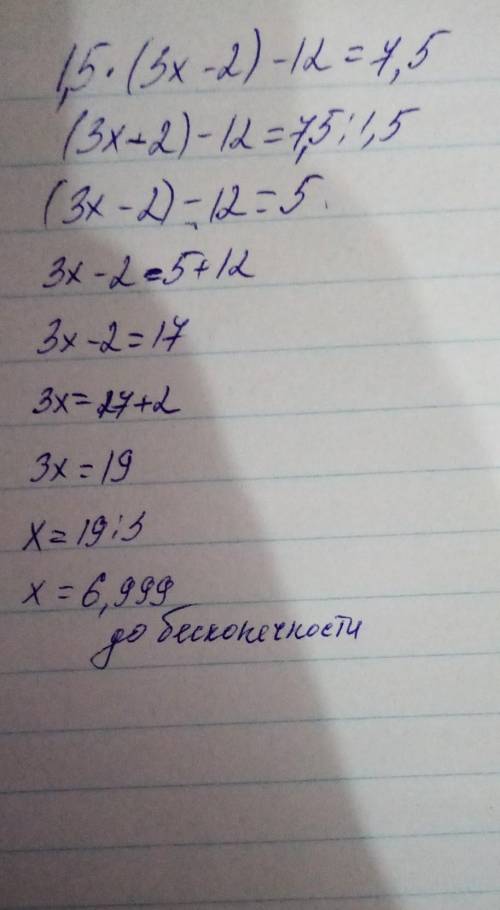 1,5·(3x-2)-12=7,5
(3x-2)-12=7,5:1,5
(3x-2)-12=5.
3x-2=5+12
3x-2=17
3x=17+2
3x=19
x=19:3
x=6,999
до бесконечности